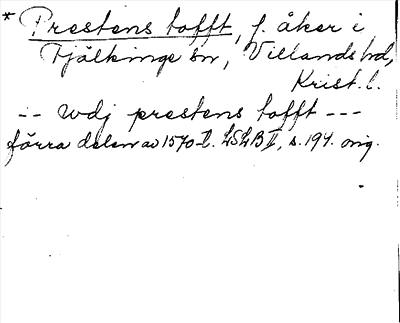 * Prestens tofft, f. åker i
Fjälkinge sn, Villands hd,
Krist. l.
-- Wdj prestens tofft ---
förra delen av 1570-t. LSLB II, s. 194. orig.